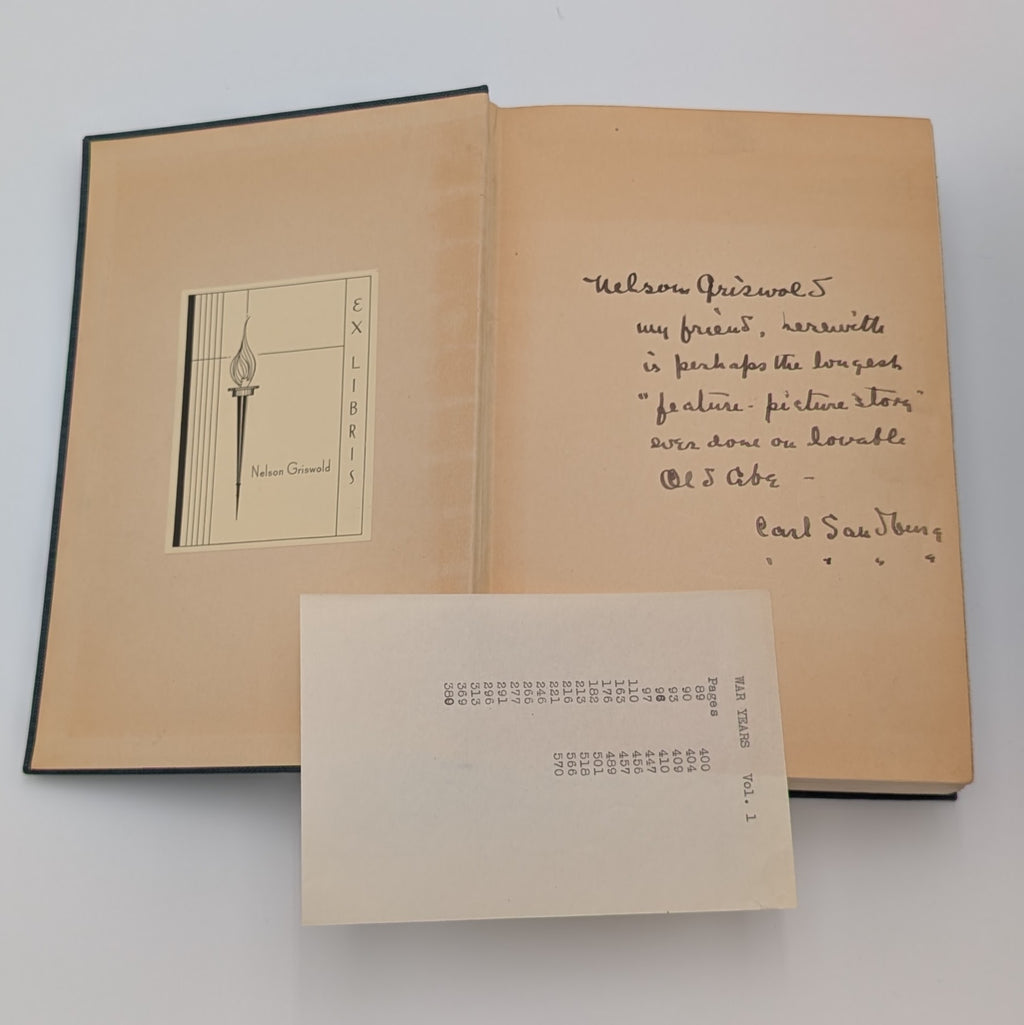 EX LIBRIS
Nelson Griswold
Nelson Griswold
my friend, herewith
is perhaps the longest
"feature-picture story"
ever done on lovable
Old Abe –
Carl Sandburg
WAR YEARS Vol. 1
Pages
89 400
90 404
93 409
96 410
97 447
110 456
163 457
176 489
182 501
213 518
216 566
221 570
246
266
277
291
296
313
369
380